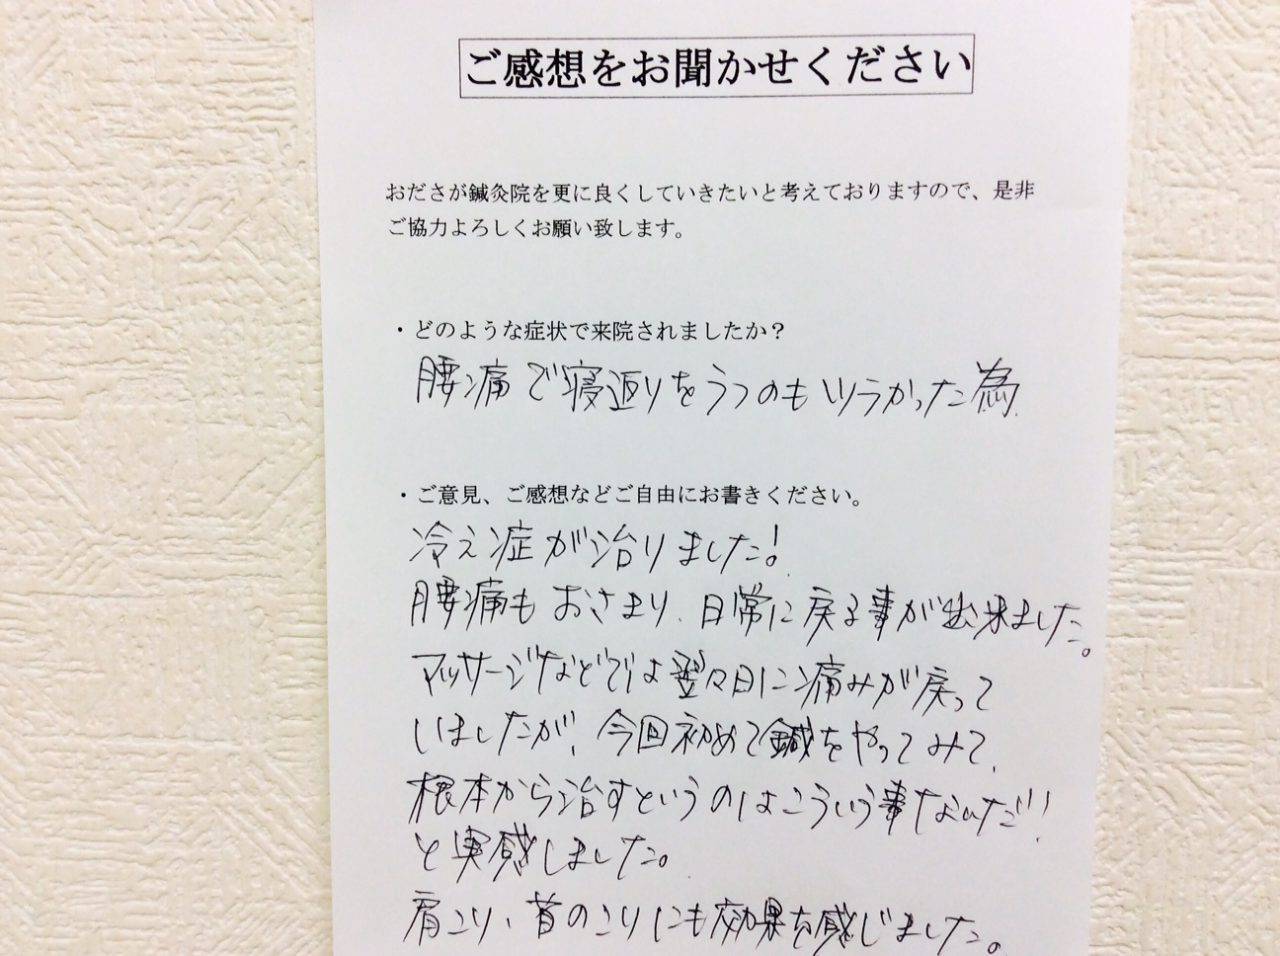 ご感想をお聞かせください
おださが鍼灸院を更に良くしていきたいと考えておりますので、是非
ご協力よろしくお願い致します。
・どのような症状で来院されましたか？
腰痛で寝返りをうつのもツラかった為
・ご意見、ご感想などご自由にお書きください。
冷え症が治りました!
腰痛もおさまり、日常に戻る事が出来ました。
マッサージなどでは翌々日に痛みが戻って
いましたが、今回初めて鍼をやってみて、
根本から治すというのはこういう事なんだ!!
と実感しました。
肩こり、首のこりにも効果を感じました。